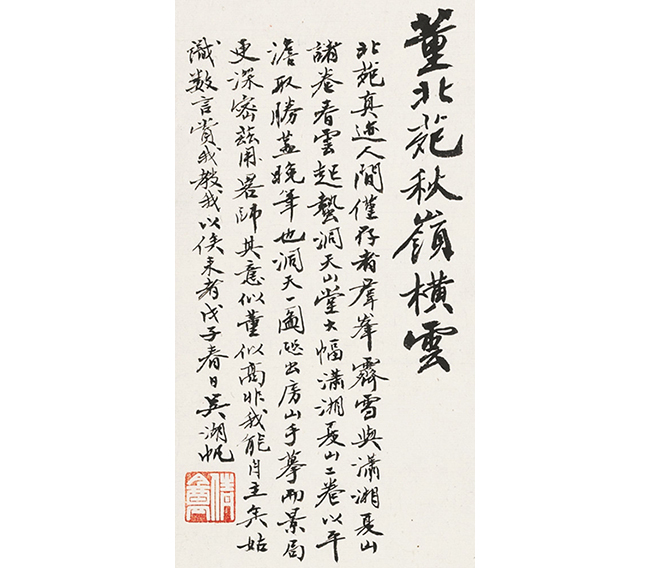 董北苑秋嶺橫雲
北苑真迹人間僅存者羣峯霽雪與瀟湘夏山
諸卷春雲起蟄洞天山堂大幅瀟湘夏山二卷以平
澹取勝蓋晚筆也洞天一圖恐出房山手摹而景局
更深密茲用略師其意似董似高非我能自主矣姑
識數言賞我教我以俟来者戊子春日吳湖帆
倩盦